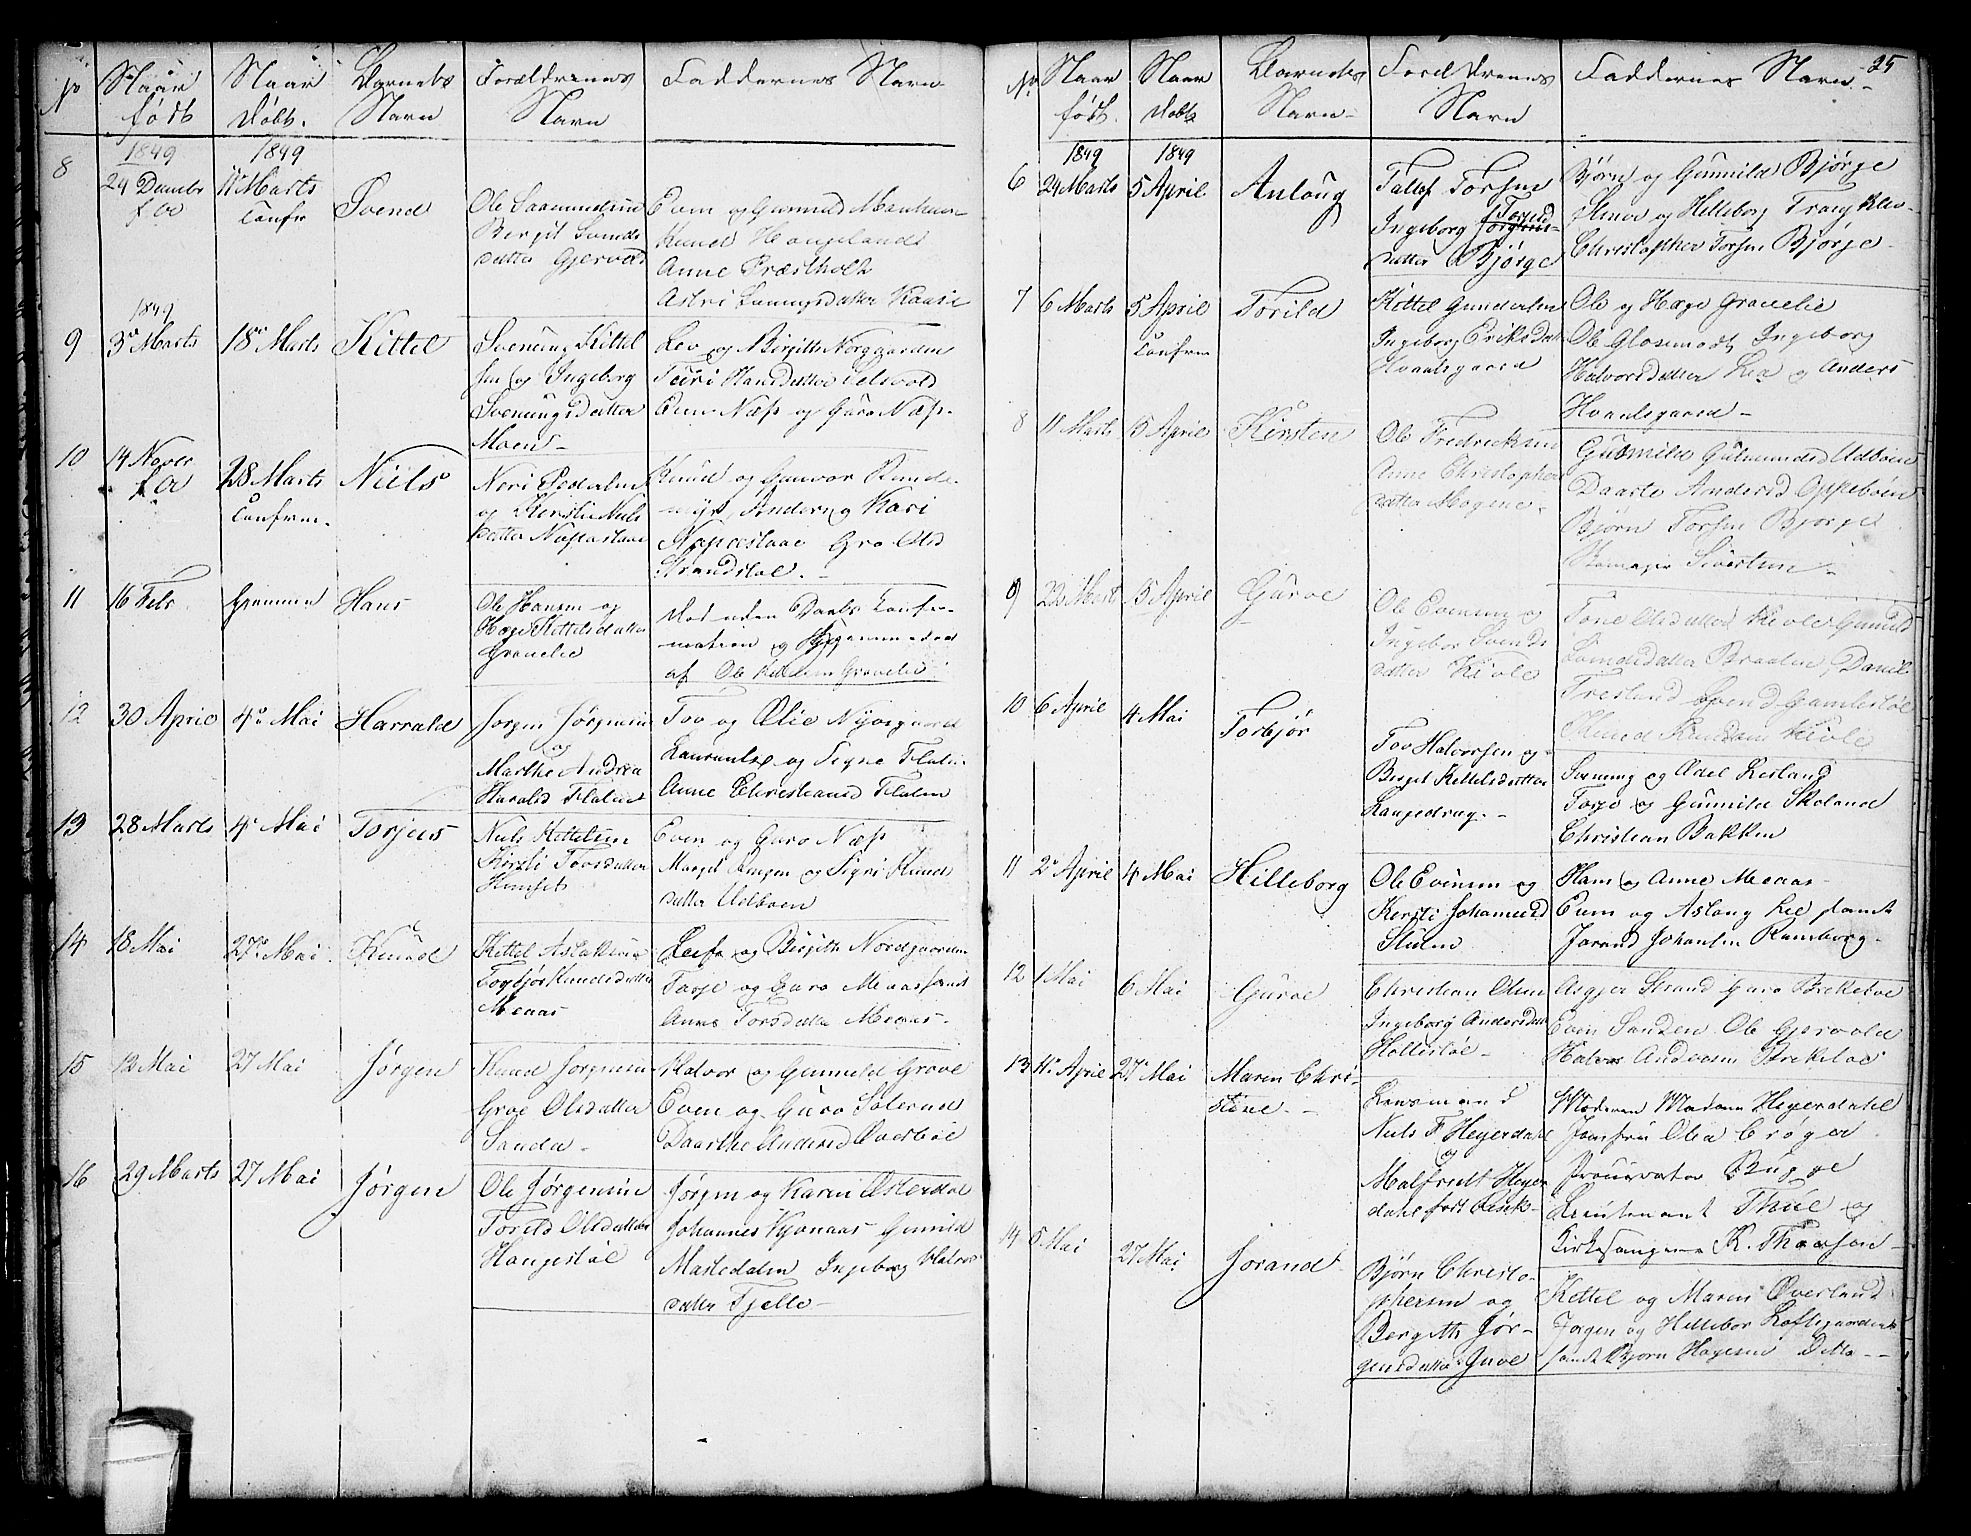 No
Naar
født
Naar
Døbt.
Barnets
Navn
Forældrenes
Navn
Faddernes Navn
8
1849
24 Decembr
f. A
1849
11te Marts
Confr
Svend
Ole
Bergit
datter Gjervold
Even og Gunild
Knud Haugelands
Anne Præstholt
Astri
9
1849
3de Marts
18de Marts
Kittel
Svenung Kittel
sen og Ingeborg
Svenungsdatter
Moen
Lev og Birgitte Norgaarden
Turi Hansdatter Selvold
Even Næss og Guro Næss
10
14 Nover
f. A
28 Marts
Confrm.
Niels
Neri Pedersen
og Kirstie Niels
datter
Knud og Gunvor
Anders og Kari
Gro Olsd
Strandstøl.
11
16 Febr
Hjemmed
Hans
Ole Hansen og
Hæge Kittelsdatter
Gravelie
Død uden Daabs Confir-
mation og Hjemmedøbt
af Ole Gravelie
12
30 April
4de Mai
Harrald
Jørgen Jørgensen
og
Marthe Andrea
Harald Flaten
Tov og Ælie Nygaard
og Signe Flaten
Anne Christiansd Flaten
13
28 Marts
4de Mai
Torjus
Niels Kittelsen
Kirsti Tovsdatter
Even og Guro Næss
og Sigri Knuds
datter Udbøen
14
18 Mai
27de Mai
Knud
Kittel Aslaksen
Torbjør Knudsdatter
Meaas
og Birgitte Nordgaarden
Tarje og Guro Meaas samt
Anne Torsdatter Meaas.
15
12 Mai
27 Mai
Jørgen
Knud Jørgensen
Groe Olsdatter
Sanda
Halvor og Gunnild Grave
Even og Guro Solerud
Daarthe Andersd Øverbøe
16
29 Marts
27 Mai
Jørgen
Ole Jørgensen
Torild Olsdatter
Haugestøl
Jørgen og Karen Østerdal
Johannes Kjonaas Gunild
Mastedalen Ingeborg Halvor
datter Fjelle
25
No
Naar
født.
Naar
Døbt
Barnets
Navn
Forældrenes
Navn
Faddernes Navn
6
1849
24 Marts
1849
5 April
Anloug
Tallef Torsen
Ingeborg Torsd
datter Bjørge
Bjørn og Gunnild Bjørge
og Helleborg
Christopher Torsen Bjørge
7
6 Marts
5 April
Confrm
Torild
Kittel Gundersen
Ingeborg Eriksdat
Hvaalsgaard
Ole og Hæge Gravelie
Ole Glosemodt Ingeborg
Halvorsdatter Lia og Anders
Hvaalsgaard
8
11 Marts
5 April
Kirsten
Ole Fredriksen
Anne Christopher
datter Mogene.
Gunnild Gulmundsd Udbøen
Daarte Andersd Oppebøen
Bjørn Torsen Bjørge
Sivertsen
9
22 Marts
5 April
Gurve
Ole Evensen og
Ingebor Svends
datter Kivle
Tone Olsdatter Kivle Gunild
Braaten, Daniel
Treland Svend Gamlestøl
Knud Knudsen Kivle
10
6 April
4 Mai
Torbjør
Tov Halvorsen og
Birgit Kittelsdatter
Langedrag.
Svenung og Adel Lisland
Torge og Gunnild Skoland
Christian Bakken
11
2de April
4 Mai
Hilleborg
Ole Evensen og
Kersti Johannesd
Stulen
Hans og Anne Meaas
Even og Aslaug Lie samt
Jorand Johansen Ramberg
12
1 Mai
6 Mai
Gurve
Christian Olsen
Ingeborg Andersdat
Hollestøl
Asgjer Strand Guro Brekstøe
Even Sanden Ole Gjervold
Halvor Andersen Brekstøe
13
11te April
27de Mai
Maren Chri-
stine
Lensmand
Niels F Heyerdahl
og
Malfridt Heyer
dahl født Disek
Moderen Madam Heyerdahl
Jomfru Olea Crøger
Procurator Bugge
Lieutenant Thue og
Kirkesanger K. Thorsen
14
5 Mai
27 Mai
Jorand
Bjørn Christo-
phersen og
Bergithe Jør-
gensdatter Juve
Kettel og Maren Øverland
Jørgen og Hillebor Loftsgaarden
samt Bjørn Hagesen Ditto